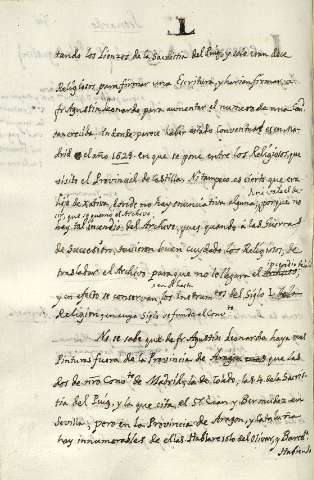 L
tando los Lienzos de la Sacristia del Puig, y este eran doce
Religiosos, para firmar una Escritura, y havian firmar
fr. Agustin Leonardo para aumentar el numero de una
En donde parece haber estado Conventual es en Ma-
drid el año 1624. en que se pone entre los Religiosos, que
visitó el Provincial de Castilla. Ni tampoco es cierto que era
hijo de Xativa, donde no hay enunciativa alguna, porque no
hay tal incendio del Archivo, pues quando á las Guerras
de Succesion, tuvieron buen cuydado los Religiosos, de
trasladar el Archivo para que no le llegara el
y en efecto se conservan los Instrumtos del Siglo I. de la
Religion, en cuyo Siglo se fundó el Convto.
No se sabe que de fr. Agustin Leonardo haya mas
Pinturas fuera de la Provincia de Aragon que las
dos de nro Convto de Madrid, la de Toledo, las 4 de la Sacris-
tia del Puig, y la que cita el Sr. Cean y Bermudez en
Sevilla, pero en la Provincia de Aragon, y Cataluña
hay innumerables de ellas. Hablare solo del Olivar, y Barcna.
Habiendo